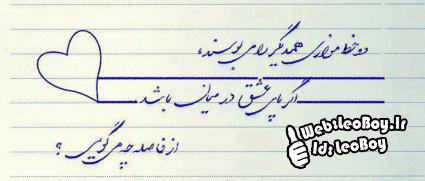 دو خط موازی همدیگر را می بوسند،
اگر پای عشق در میان باشد
از فاصله چه می گویی ؟
Web:LeoBoy.Ir
Id:LeoBoy